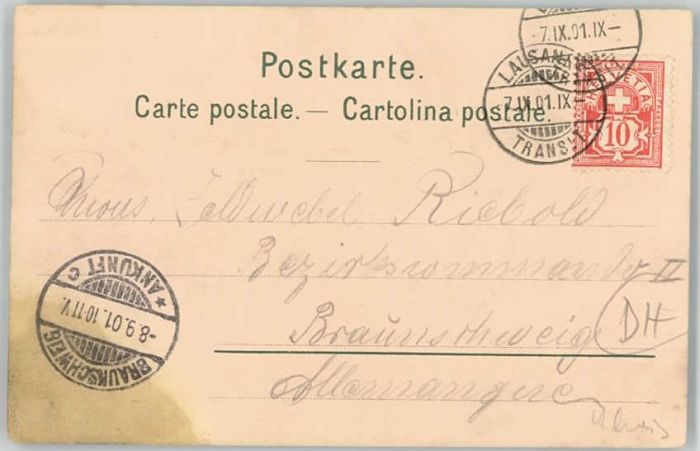 -7.IX.01.IX-
LAUSANNE
-7.IX.01.IX-
TRANSIT
HELVETIA
10
Postkarte.
Carte postale. — Cartolina postale.
Feldwebel Riebold
Bezirkscommando II
Braunschweig
DH
Allemangne
ANKUNFT c
-8.9.01.10-11V.
BRAUNSCHWEIG